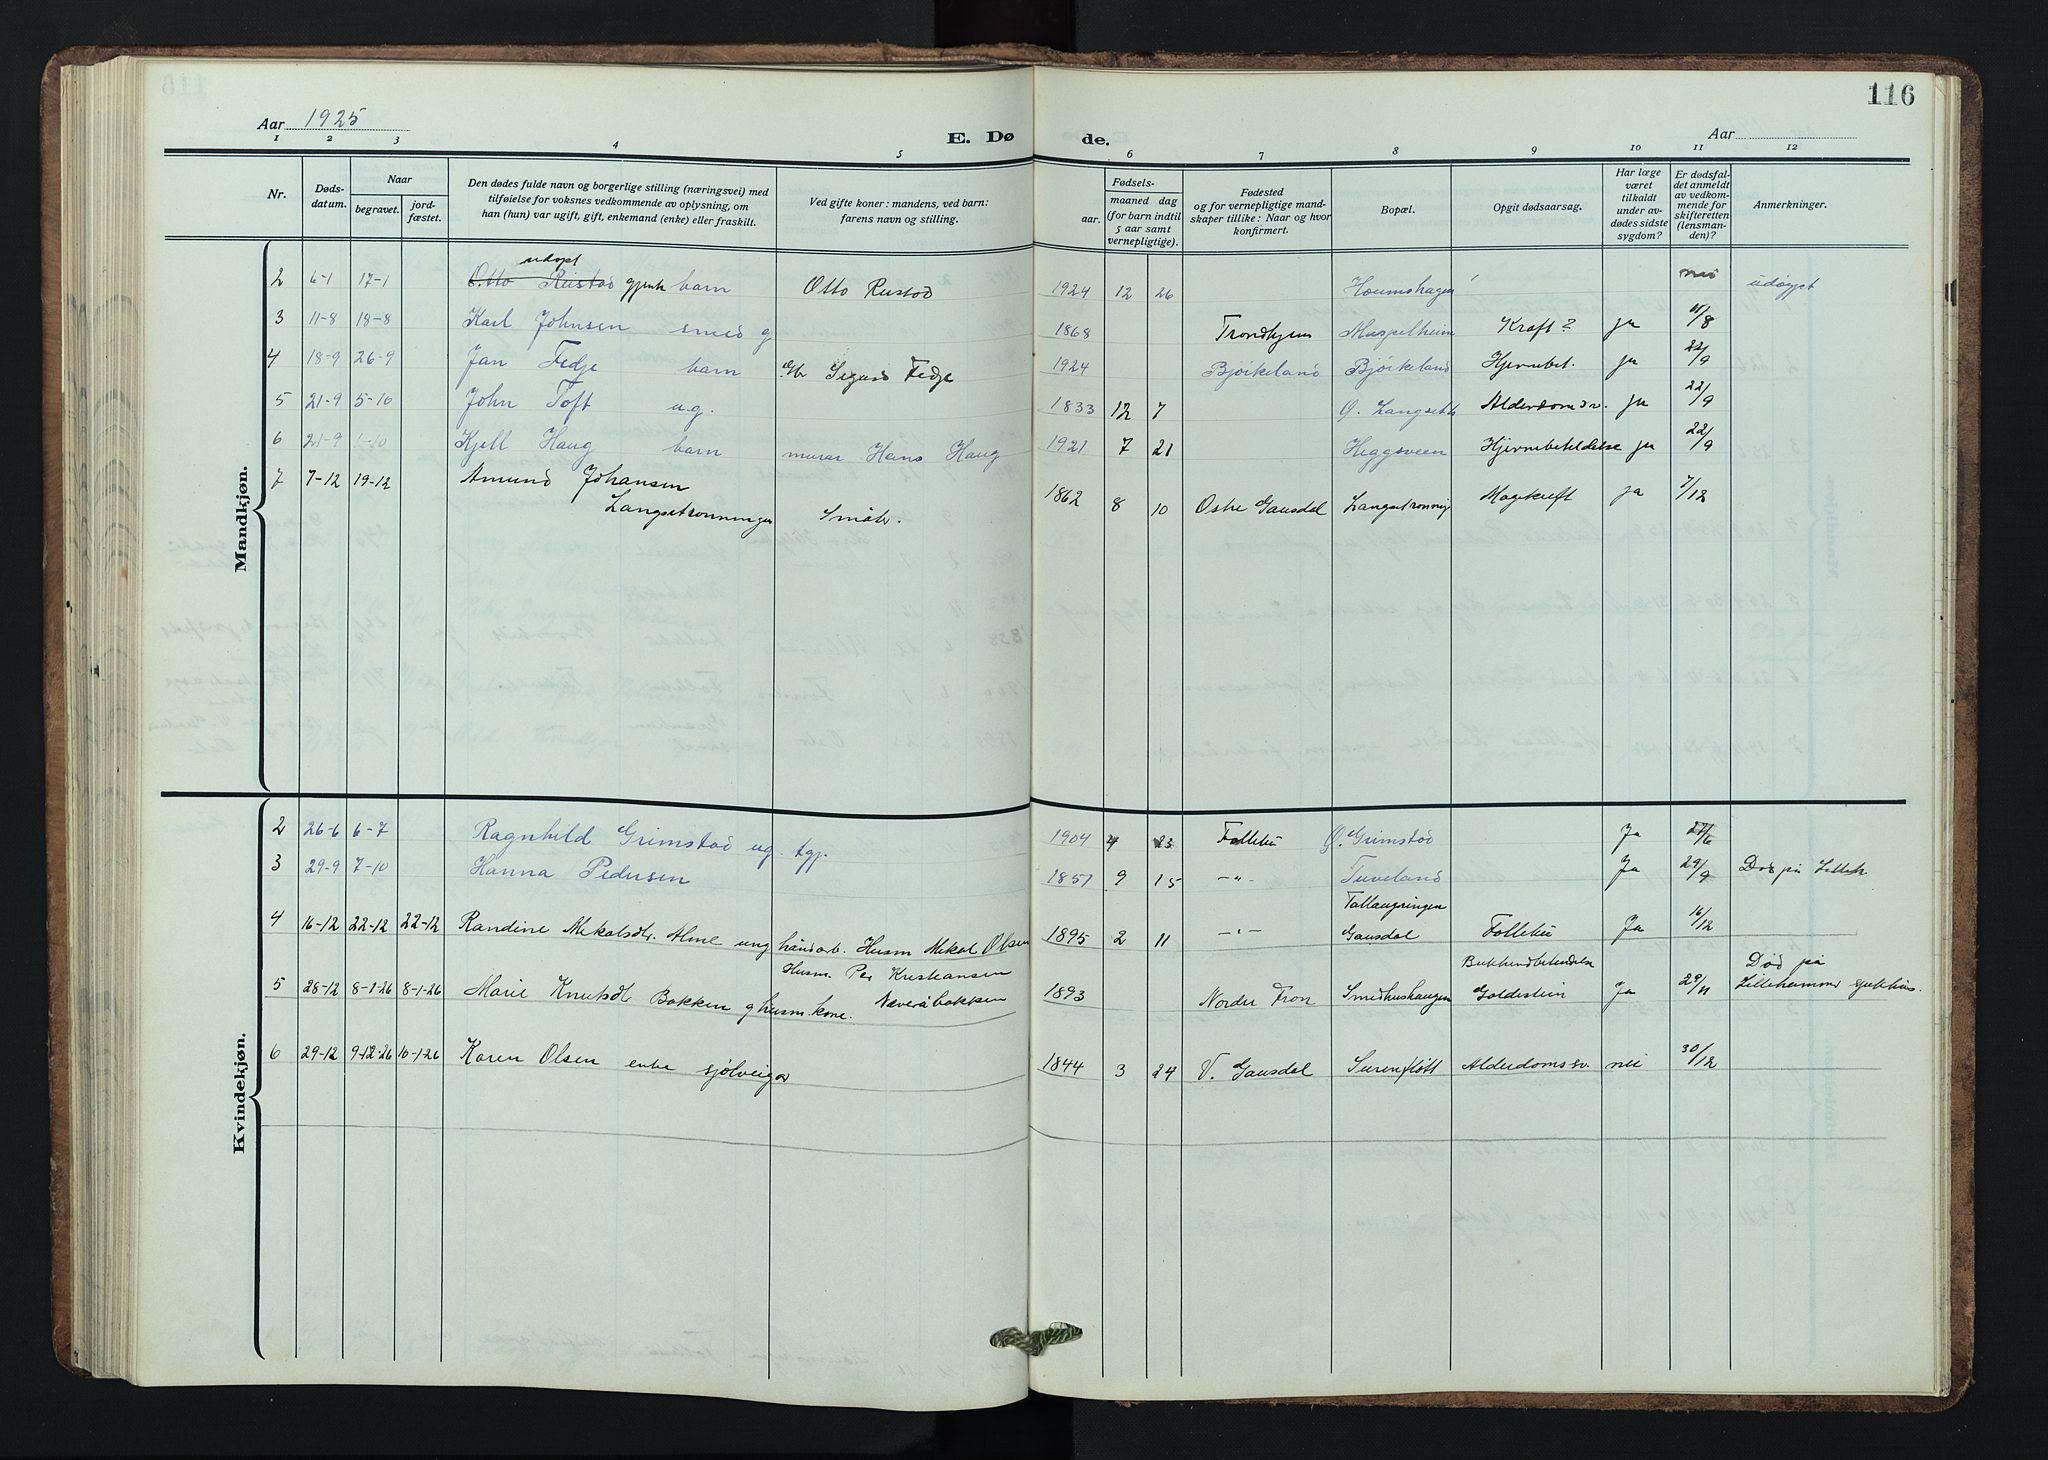 116
Aar 1925
E. Dø de.
Aar
1 2 3 4 5 6 7 8 9 10 11 12
Nr.
Døds-
datum.
Naar
begravet.
jord-
fæstet.
Den dødes fulde navn og borgerlige stilling (næringsvei) med
tilføielse for voksnes vedkommende av oplysning, om
han (hun) var ugift, gift, enkemand (enke) eller fraskilt.
Ved gifte koner: mandens, ved barn:
farens navn og stilling.
Fødsels-
aar.
maaned dag
(for barn indtil
5 aar samt
vernepligtige).
Fødested
og for vernepligtige mand-
skaper tillike: Naar og hvor
konfirmert.
Bopæl.
Opgit dødsaarsag.
Har læge
været
tilkaldt
under av-
dødes sidste
sygdom?
Er dødsfal-
det anmeldt
av vedkom-
mende for
skifteretten
(lensman-
den)?
Anmerkninger.
Mandkjøn.
udøpt
2 6-1 17-1 Otto Rustad barn Otto Rustad 1924 12 26 nei udøypt
3 11-8 18-8 Karl Johnsen smed g 1868 Trondhjem Muspelheim Kraft? ja 11/8
4 18-9 26-9 Jan Fedje barn Sigurd Fedje 1924 Bjørkeland Bjørkeland Hjernebet. ja 22/9
5 21-9 5-10 John Toft u.g. 1833 12 7 Ø. Langseth Alderdomsv. ja 22/9
6 21-9 1-10 Kjell Haug barn murar Hans Haug 1921 7 21 Heggsveen Hjernebetendelse ja 22/9
7 7-12 19-12 Amund Johansen
Langsetrønningen Småbr. 1862 8 10 Østre Gausdal Langsetrønning Magekreft ja 7/12
Kvindekjøn.
2 26-6 6-7 Ragnhild Grimstad ug. tgj. 1904 4 23 Follebu Ø. Grimstad Ja 27/6
3 29-9 7-10 Hanna Pedersen 1851 9 15 -"- Tuveland Ja 29/9 Død på Lilleh
4 16-12 22-12 22-12 Randine Mekalsdtr. Alme ung håndarb. Husm Mekal Olsen 1895 2 11 -"- Gausdal Follebu Ja 16/12
Husm. Per Kristiansen
5 28-12 8-1-26 8-1-26 Marie Knutsdt Bakken g husm. kone. Næveråbakken 1893 Nordre Fron Smedhushaugen Galdestein Ja 29/11 Død på
Lillehammer sjukhus.
6 29-12 9-12-26 10-1-26 Karen Olsen enke sjølveigar 1844 3 24 V. Gausdal Surenfløtt Alderdomssv. nei 30/12